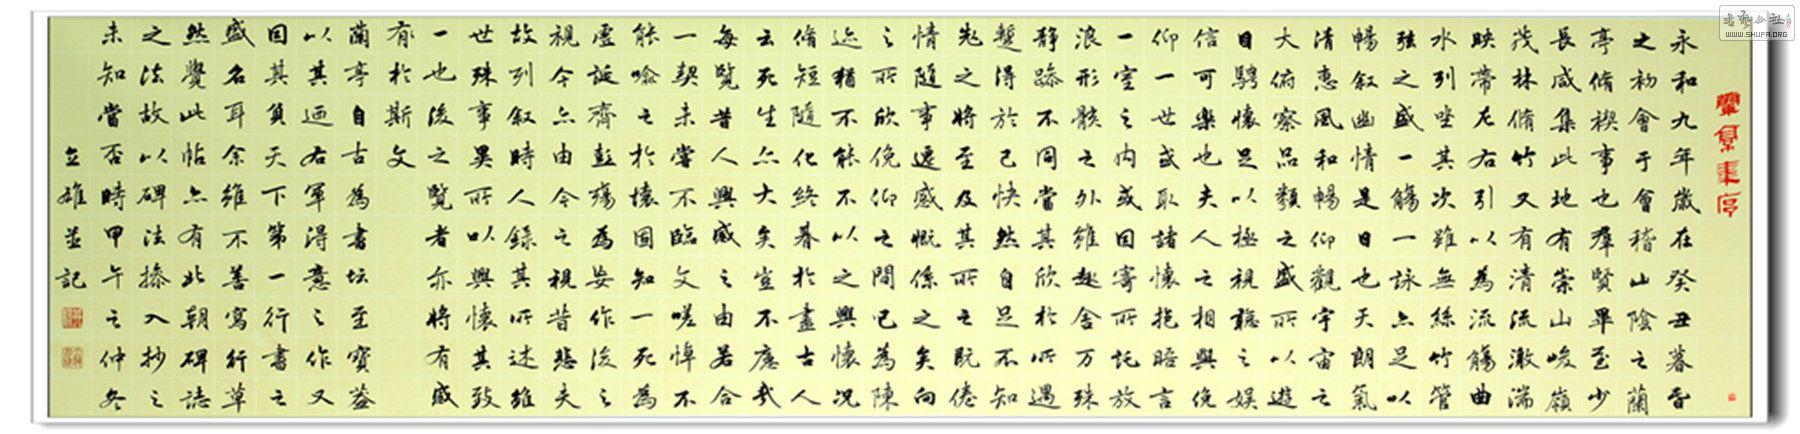 蘭亭集序
永和九年歲在癸丑暮春
之初會于會稽山陰之蘭
亭脩禊事也羣賢畢至少
長咸集此地有崇山峻嶺
茂林脩竹又有清流激湍
映帶左右引以為流觴曲
水列坐其次雖無絲竹管
弦之盛一觴一詠亦足以
暢叙幽情是日也天朗氣
清惠風和暢仰觀宇宙之
大俯察品類之盛所以遊
目騁懷足以極視聽之娛
信可樂也夫人之相與俛
仰一世或取諸懷抱晤言
一室之内或因寄所託放
浪形骸之外雖趣舍万殊
靜躁不同當其欣於所遇
暫得於己快然自足不知
老之將至及其所之既倦
情隨事遷感慨係之矣向
之所欣俛仰之間已為陳
迹猶不能不以之興懷況
脩短隨化終期於盡古人
云死生亦大矣豈不痛哉
每覽昔人興感之由若合
一契未嘗不臨文嗟悼不
能喻之於懷固知一死為
虛誕齊彭殤為妄作後之
視今亦由今之視昔悲夫
故列叙時人錄其所述雖
世殊事異所以興懷其致
一也後之覽者亦將有感
有於斯文
蘭亭自古為書坛至寶蓋
以其迺右軍得意之作又
因其負天下第一行書之
盛名耳余雖不善寫行草
然覺此帖亦有北朝碑誌
之法故以碑法摻入抄之
未知當否時甲午之仲冬
立雄並記
书法公社
WWW.SHUFA.ORG